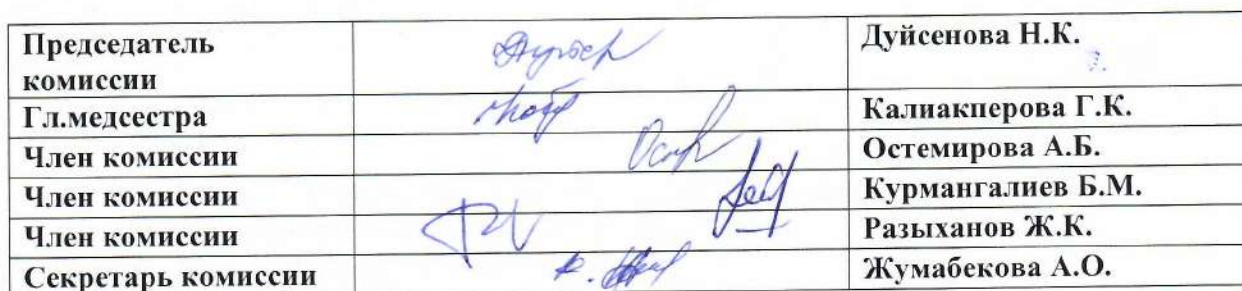 Председатель Дуйсенова Н.К.
комиссии
Гл.медсестра Калиакперова Г.К.
Член комиссии Остемирова А.Б.
Член комиссии Курмангалиев Б.М.
Член комиссии Разыханов Ж.К.
Секретарь комиссии Жумабекова А.О.